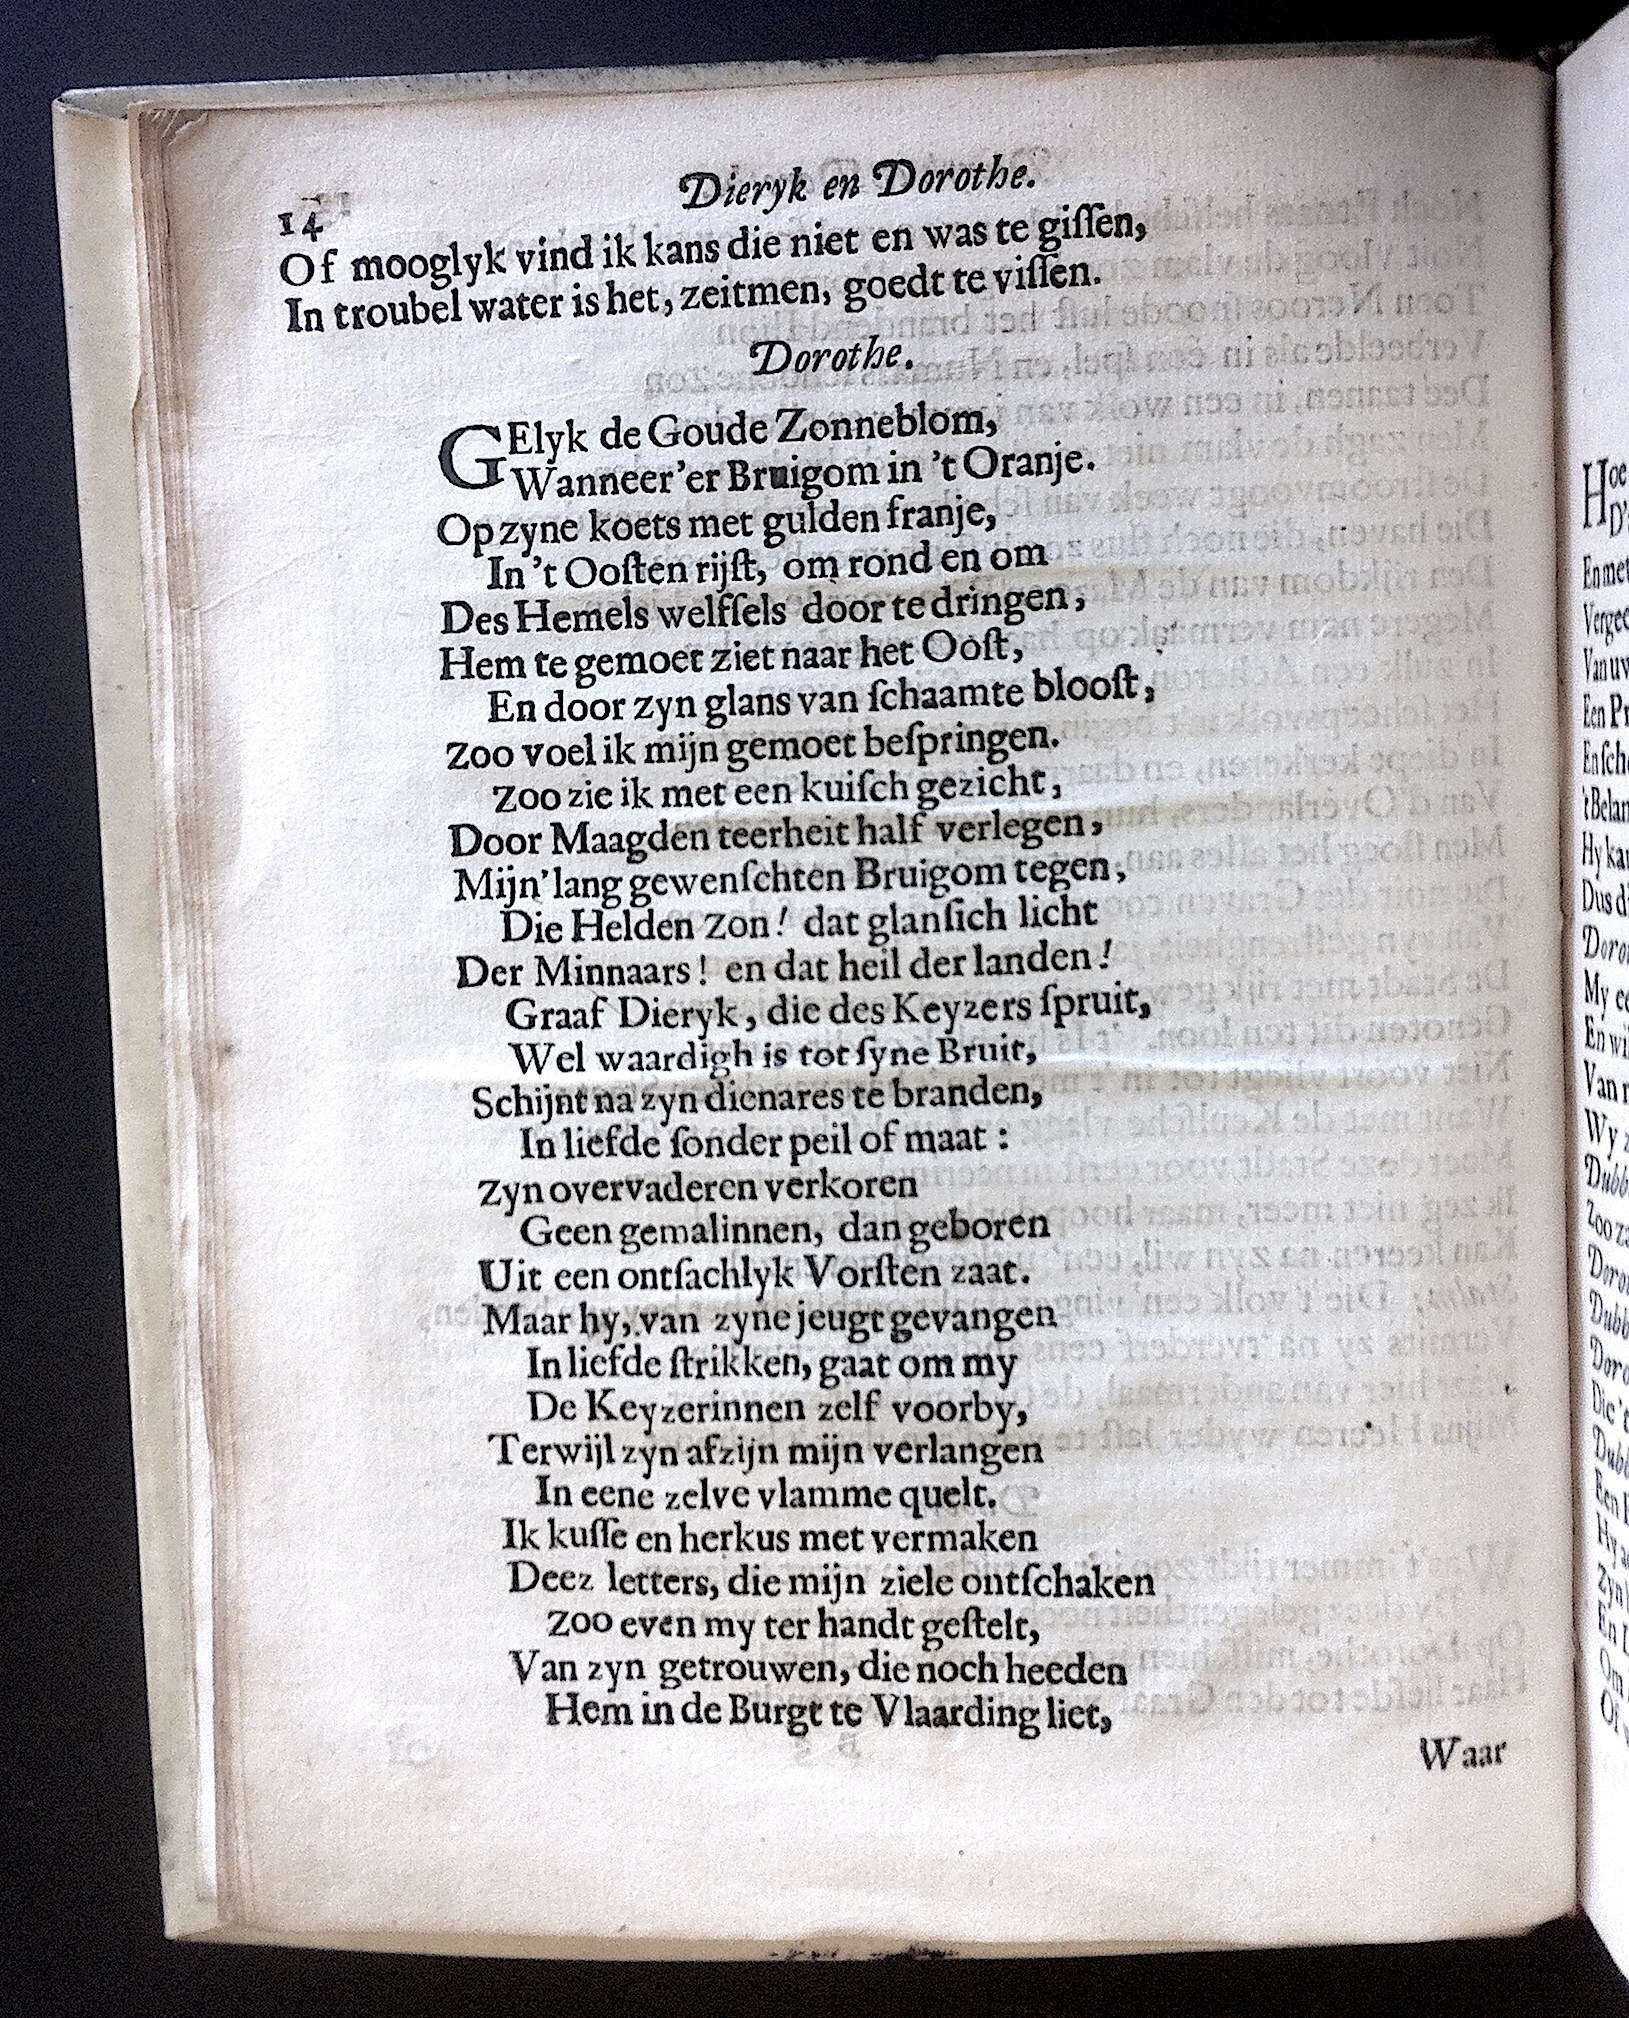 14
Dieryk en Dorothe.
Of mooglyk vind ik kans die niet en was te giſſen,
In troubel water is het, zeitmen, goedt te viſſen.
Dorothe.
GElyk de Goude Zonneblom,
Wanneer'er Bruigom in 't Oranje.
Op zyne koets met gulden franje,
In 't Ooſten rijſt, om rond en om
Des Hemels welfſels door te dringen,
Hem te gemoet ziet naar het Ooſt,
En door zyn glans van ſchaamte blooſt,
Zoo voel ik mijn gemoet beſpringen.
Zoo zie ik met een kuiſch gezicht,
Door Maagden teerheit half verlegen,
Mijn' lang gewenſchten Bruigom tegen,
Die Helden Zon! dat glanſich licht
Der Minnaars! en dat heil der landen!
Graaf Dieryk, die des Keyzers ſpruit,
Wel waardigh is tot ſyne Bruit,
Schijnt na zyn dienares te branden,
In liefde ſonder peil of maat:
Zyn overvaderen verkoren
Geen gemalinnen, dan geboren
Uit een ontſachlyk Vorſten zaat.
Maar hy, van zyne jeugt gevangen
In liefde ſtrikken, gaat om my
De Keyzerinnen zelf voorby,
Terwijl zyn afzijn mijn verlangen
In eene zelve vlamme quelt.
Ik kuſſe en herkus met vermaken
Deez letters, die mijn ziele ontſchaken
Zoo even my ter handt geſtelt,
Van zyn getrouwen, die noch heeden
Hem in de Burgt te Vlaarding liet,
Waar